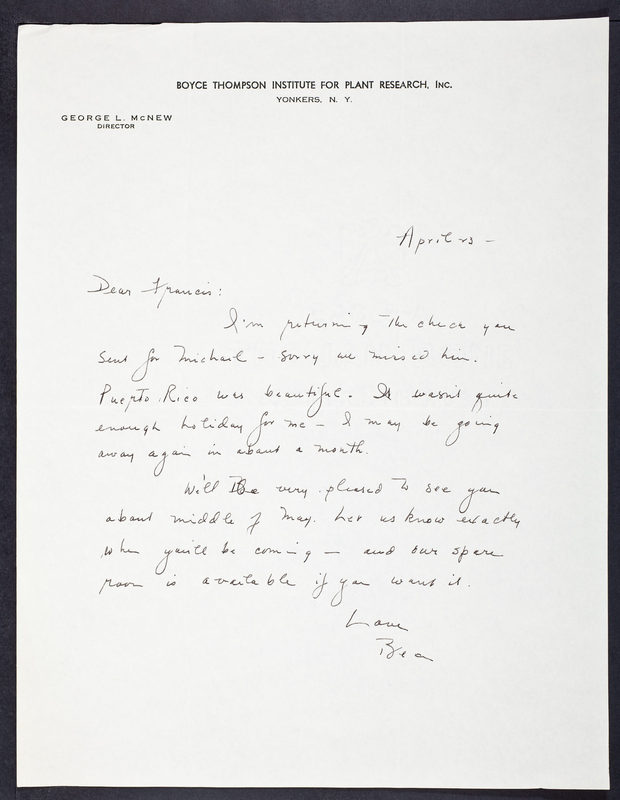 BOYCE THOMPSON INSTITUTE FOR PLANT RESEARCH, INC.
YONKERS, N. Y.
GEORGE L. McNEW
DIRECTOR
April 23 -
Dear Francis:
I'm returning the check you
sent for Michael - sorry we missed him.
Puerto Rico was beautiful. It wasn't quite
enough holiday for me - I may be going
away again in about a month.
We'll be very pleased to see you
about middle of May. Let us know exactly
when you'll be coming - and our spare
room is available if you want it.
Love
Bea